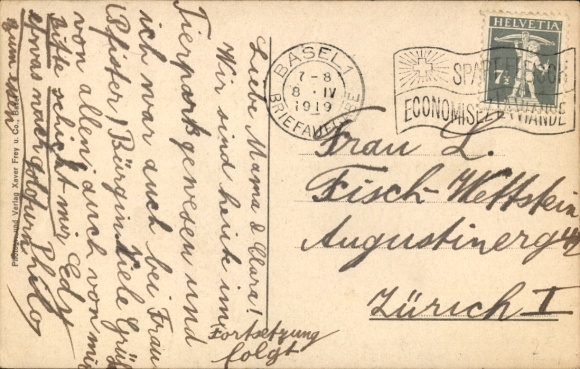 Liebe Mama & Clara!
Wir sind heute im
Tierpark gewesen und
ich war auch bei Frau
(Pfister) Bürgin. Viele Grüße
von allen, auch von mir
Bitte schickt mir Edy
etwas nach
zum
Fortsetzung
folgt
BASEL 7
7-8
8. IV
1919
BRIEFAUFGABE
SPART
ECONOMISEZ VIANDE
HELVETIA
7½
Frau L.
Fisch-Wettstein
Augustinerg
Zürich I
Photogr. und Verlag Xaver Frey u. Co., Basel